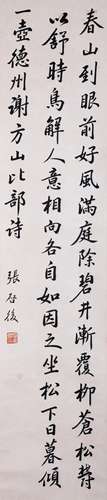 春山到眼前好風滿庭除碧井漸覆柳蒼松時
以舒時鳥解人意相向各自如因之坐松下日暮傾
一壺德州謝方山比部詩
張啓後